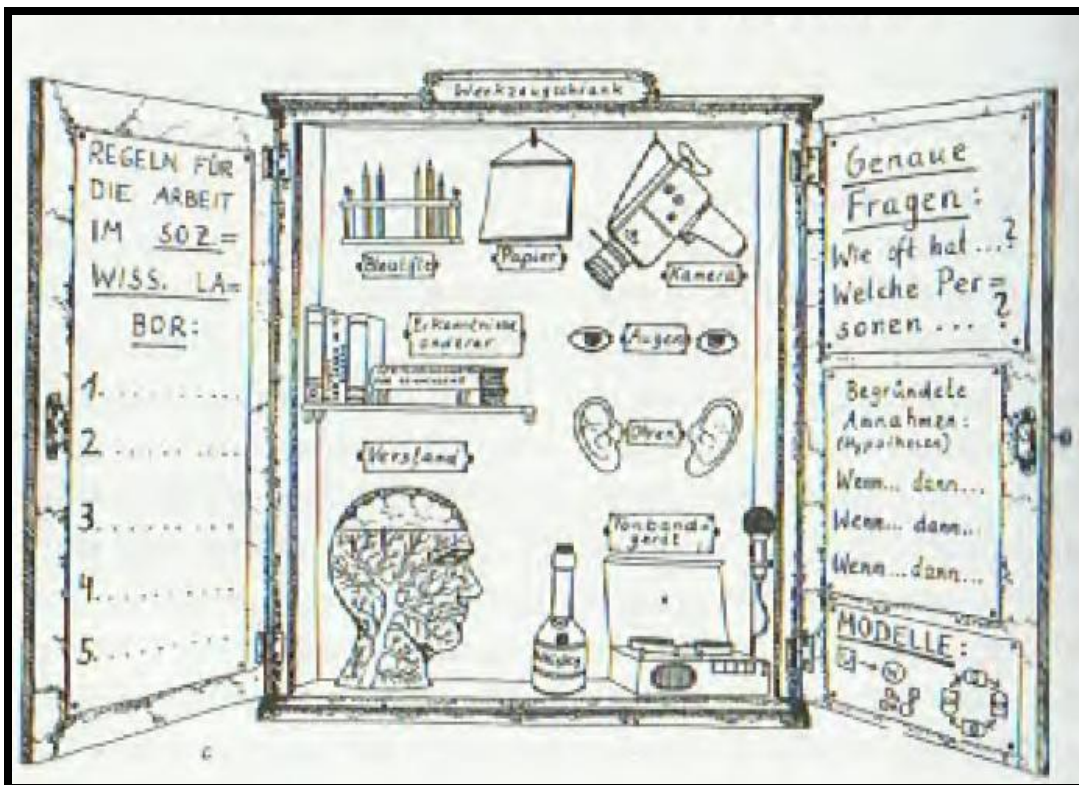 Werkzeugschrank
REGELN FÜR
DIE ARBEIT
IM SOZ=
WISS. LA=
BOR:
1. . . . . . . . . .
2. . . . . . . . . .
3. . . . . . . . . .
4. . . . . . . . . .
5. . . . . . . . . .
Papier
Kamera
Erkenntnisse
anderer
Augen
Ohren
Verstand
Tonband=
gerät
Whisky
Genaue
Fragen:
Wie oft hat ...?
Welche Per=
sonen ... ?
Begründete
Annahmen:
(Hypothesen)
Wenn... dann...
Wenn... dann...
Wenn... dann...
MODELLE:
6